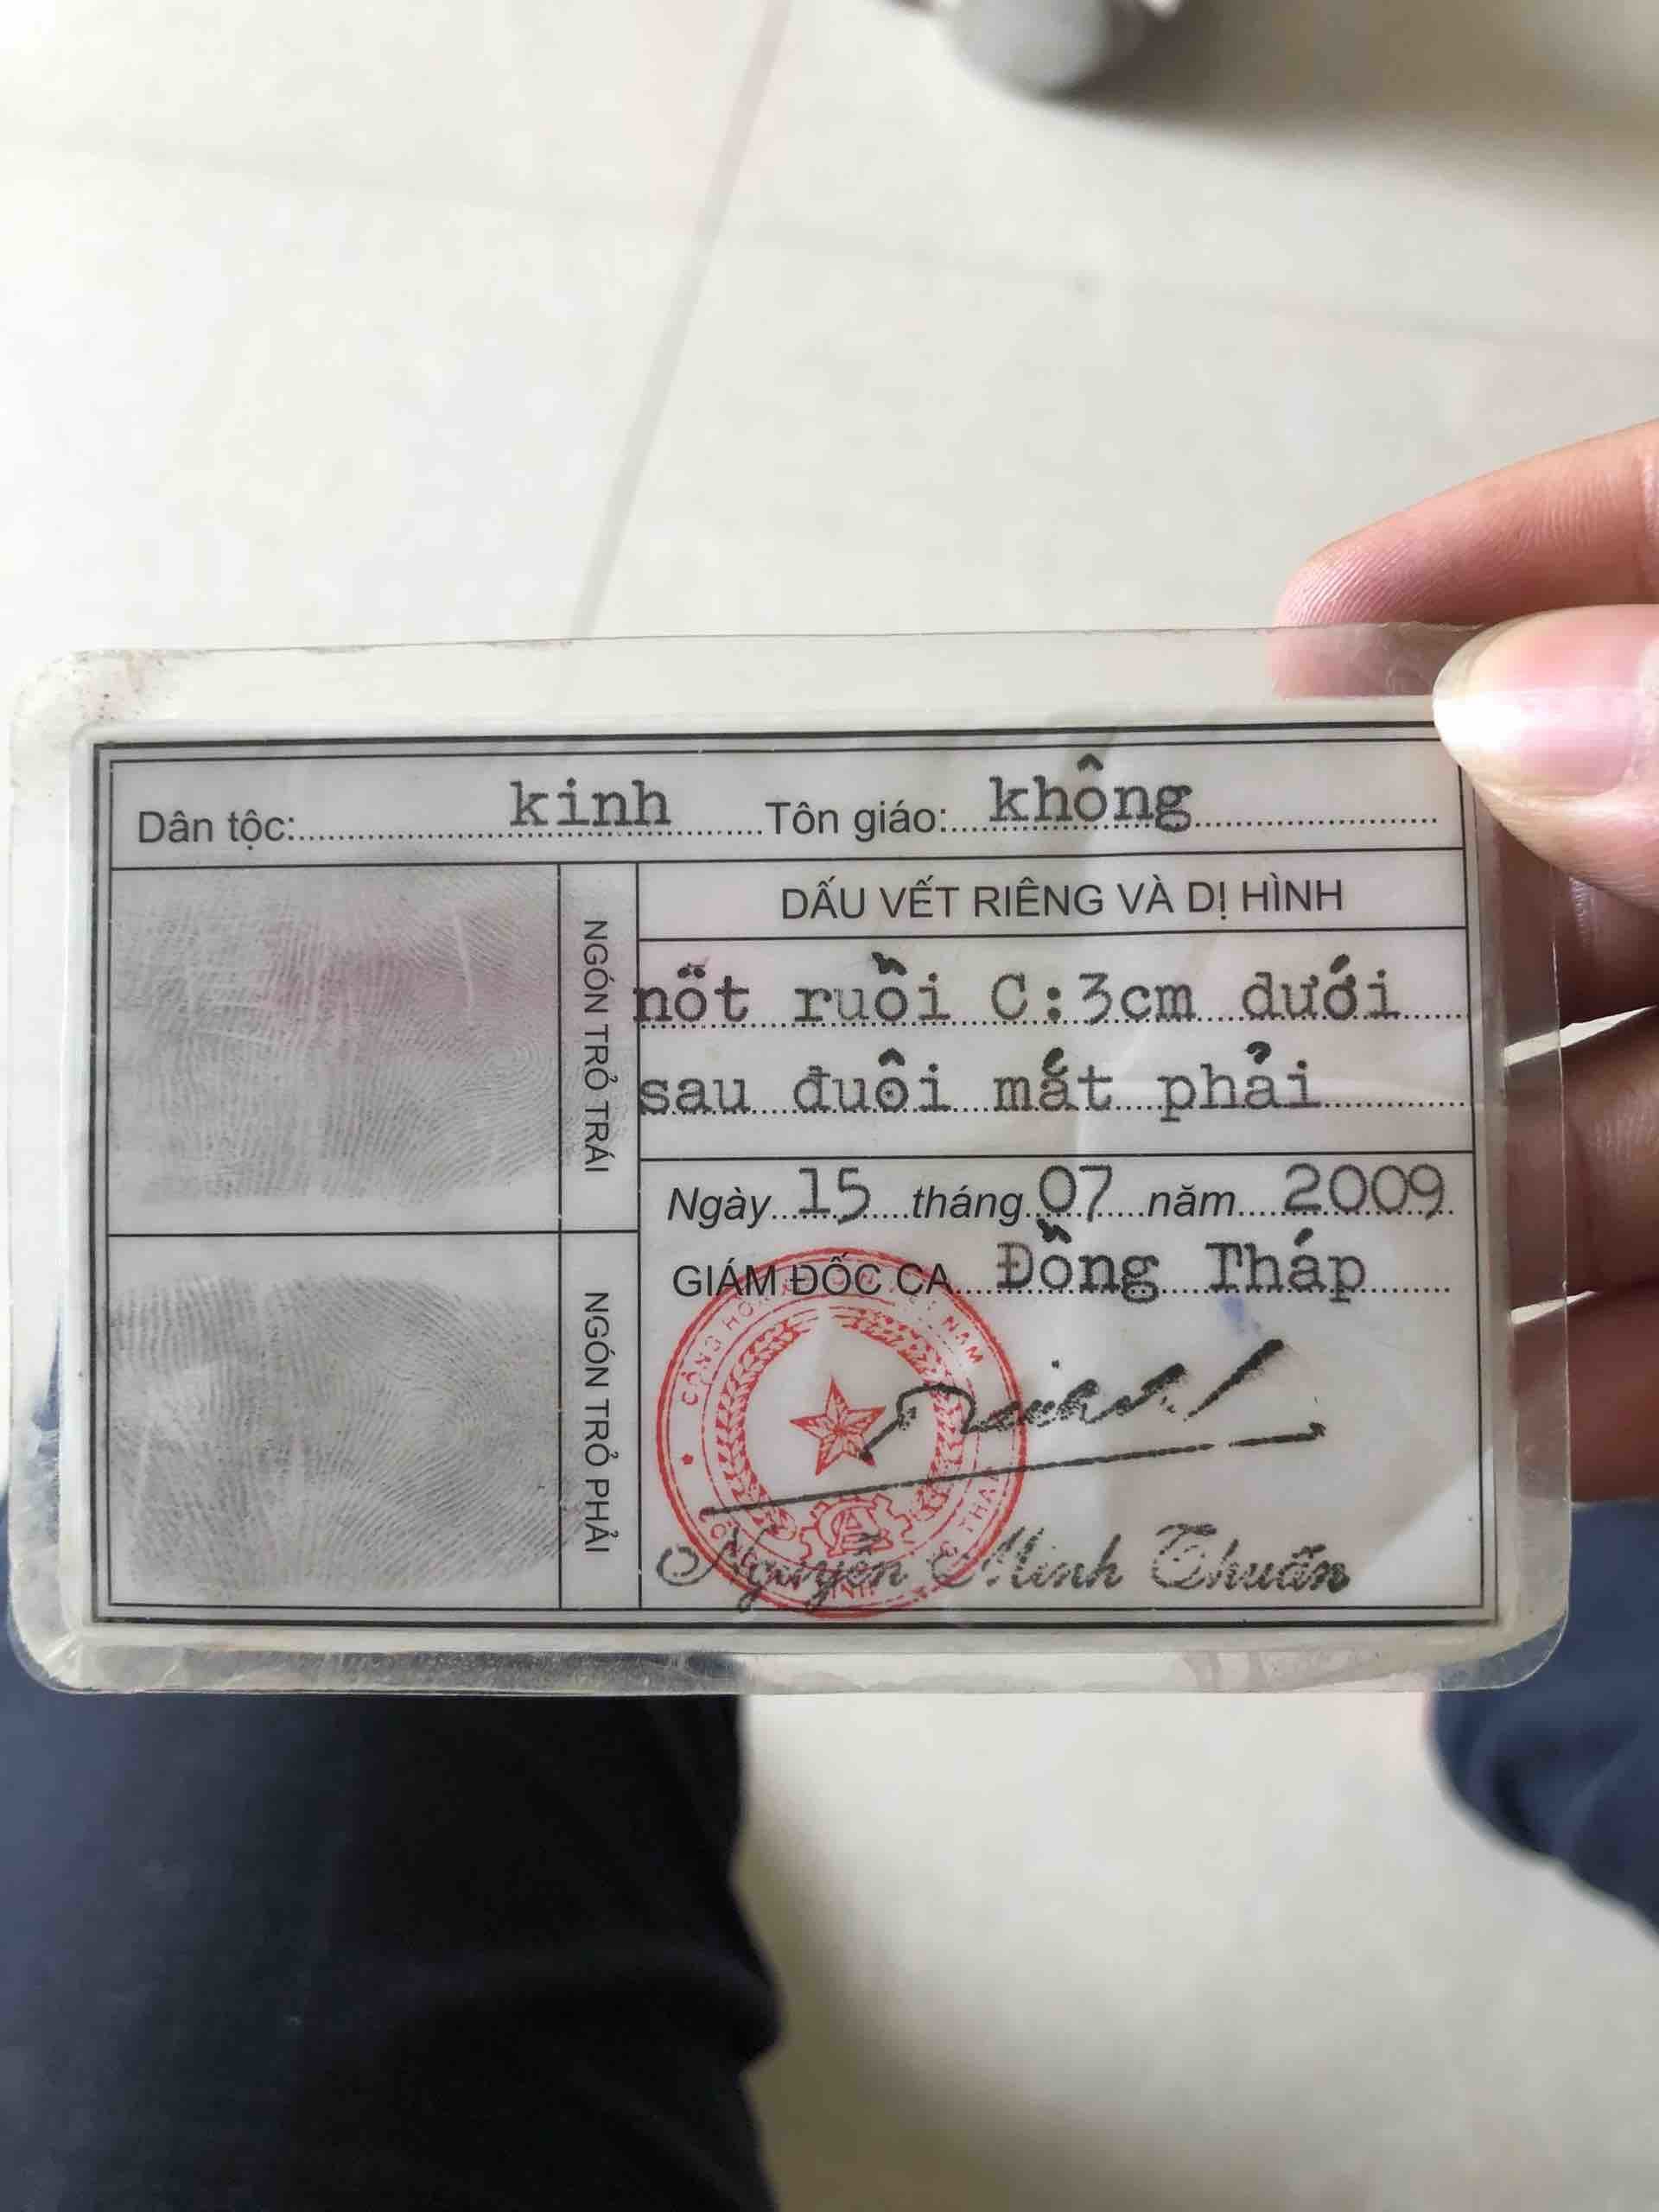 Dân tộc: kinh Tôn giáo: không
NGÓN TRỎ TRÁI
DẤU VẾT RIÊNG VÀ DỊ HÌNH
nốt ruồi C:3cm dưới
sau đuôi mắt phải
Ngày 15 tháng 07 năm 2009
GIÁM ĐỐC CA Đồng Tháp
NGÓN TRỎ PHẢI
CỘNG HÒA NAM
Nguyễn Minh Thuấn